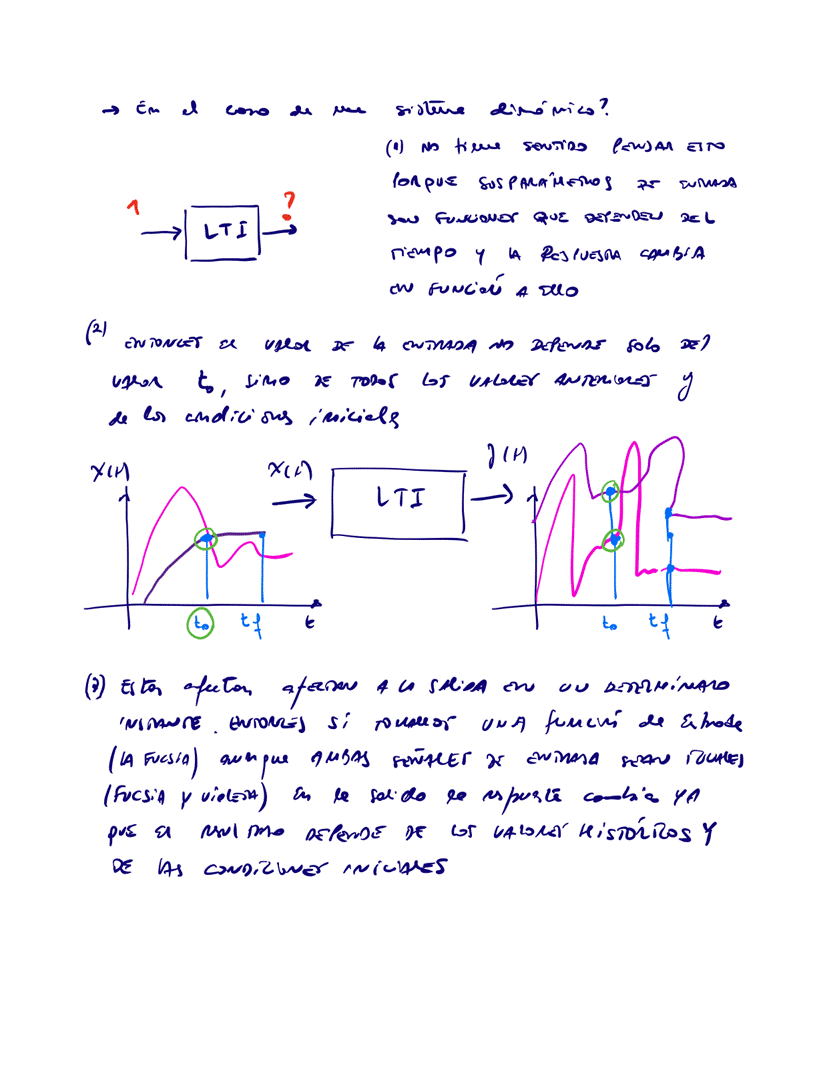 → En el caso de un sistema dinámico?
(1) NO tiene SENTIDO PENSAR ESTO
PORQUE SUS PARÁMETROS DE ENTRADA
SON FUNCIONES QUE DEPENDEN DEL
TIEMPO Y LA RESPUESTA CAMBIA
EN FUNCIÓN A ELLO
1
?
LTI
(2) ENTONCES EL VALOR DE LA ENTRADA NO DEPENDE SOLO DEL
VALOR t₀, SINO DE TODOS LOS VALORES ANTERIORES y
de las condiciones iniciales
X(t)
X(t)
LTI
y(t)
t₀
tf
t
t₀
tf
t
(3) Estos afectan A LA SALIDA EN UN DETERMINADO
INSTANTE. ENTONCES SI TOMAMOS UNA función de Entrada
(LA FUCSIA) aunque AMBAS SEÑALES DE ENTRADA SEAN IGUALES
(FUCSIA y VIOLETA) En la salida la respuesta cambia YA
QUE EL RESULTADO DEPENDE DE LOS VALORES HISTÓRICOS Y
DE LAS CONDICIONES INICIALES